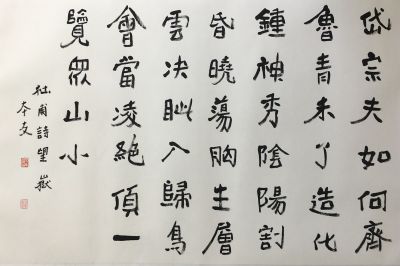 岱宗夫如何齊
魯青未了造化
鍾神秀陰陽割
昏曉蕩胸生層
雲决眦入歸鳥
會當凌絕頂一
覽眾山小
杜甫詩望嶽